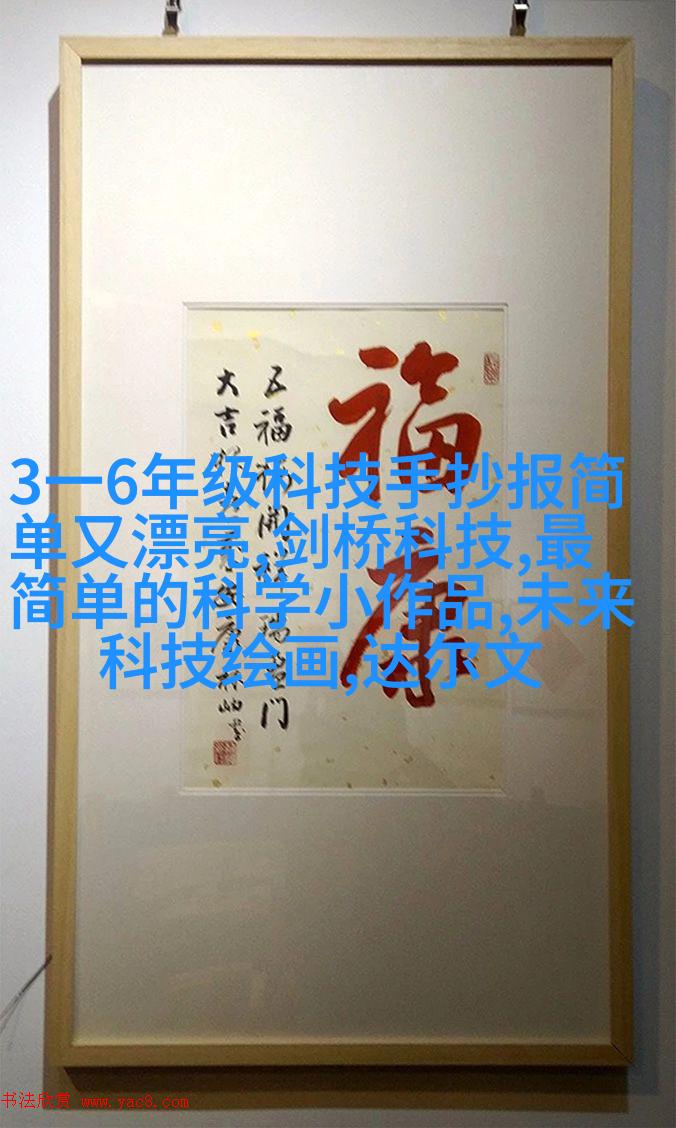 福康
五福開祥瑞盈门
大吉
3一6年级科技手抄报简
单又漂亮,剑桥科技,最
简单的科学小作品,未来
科技绘画,达尔文
书法欣赏 www.yac8.com